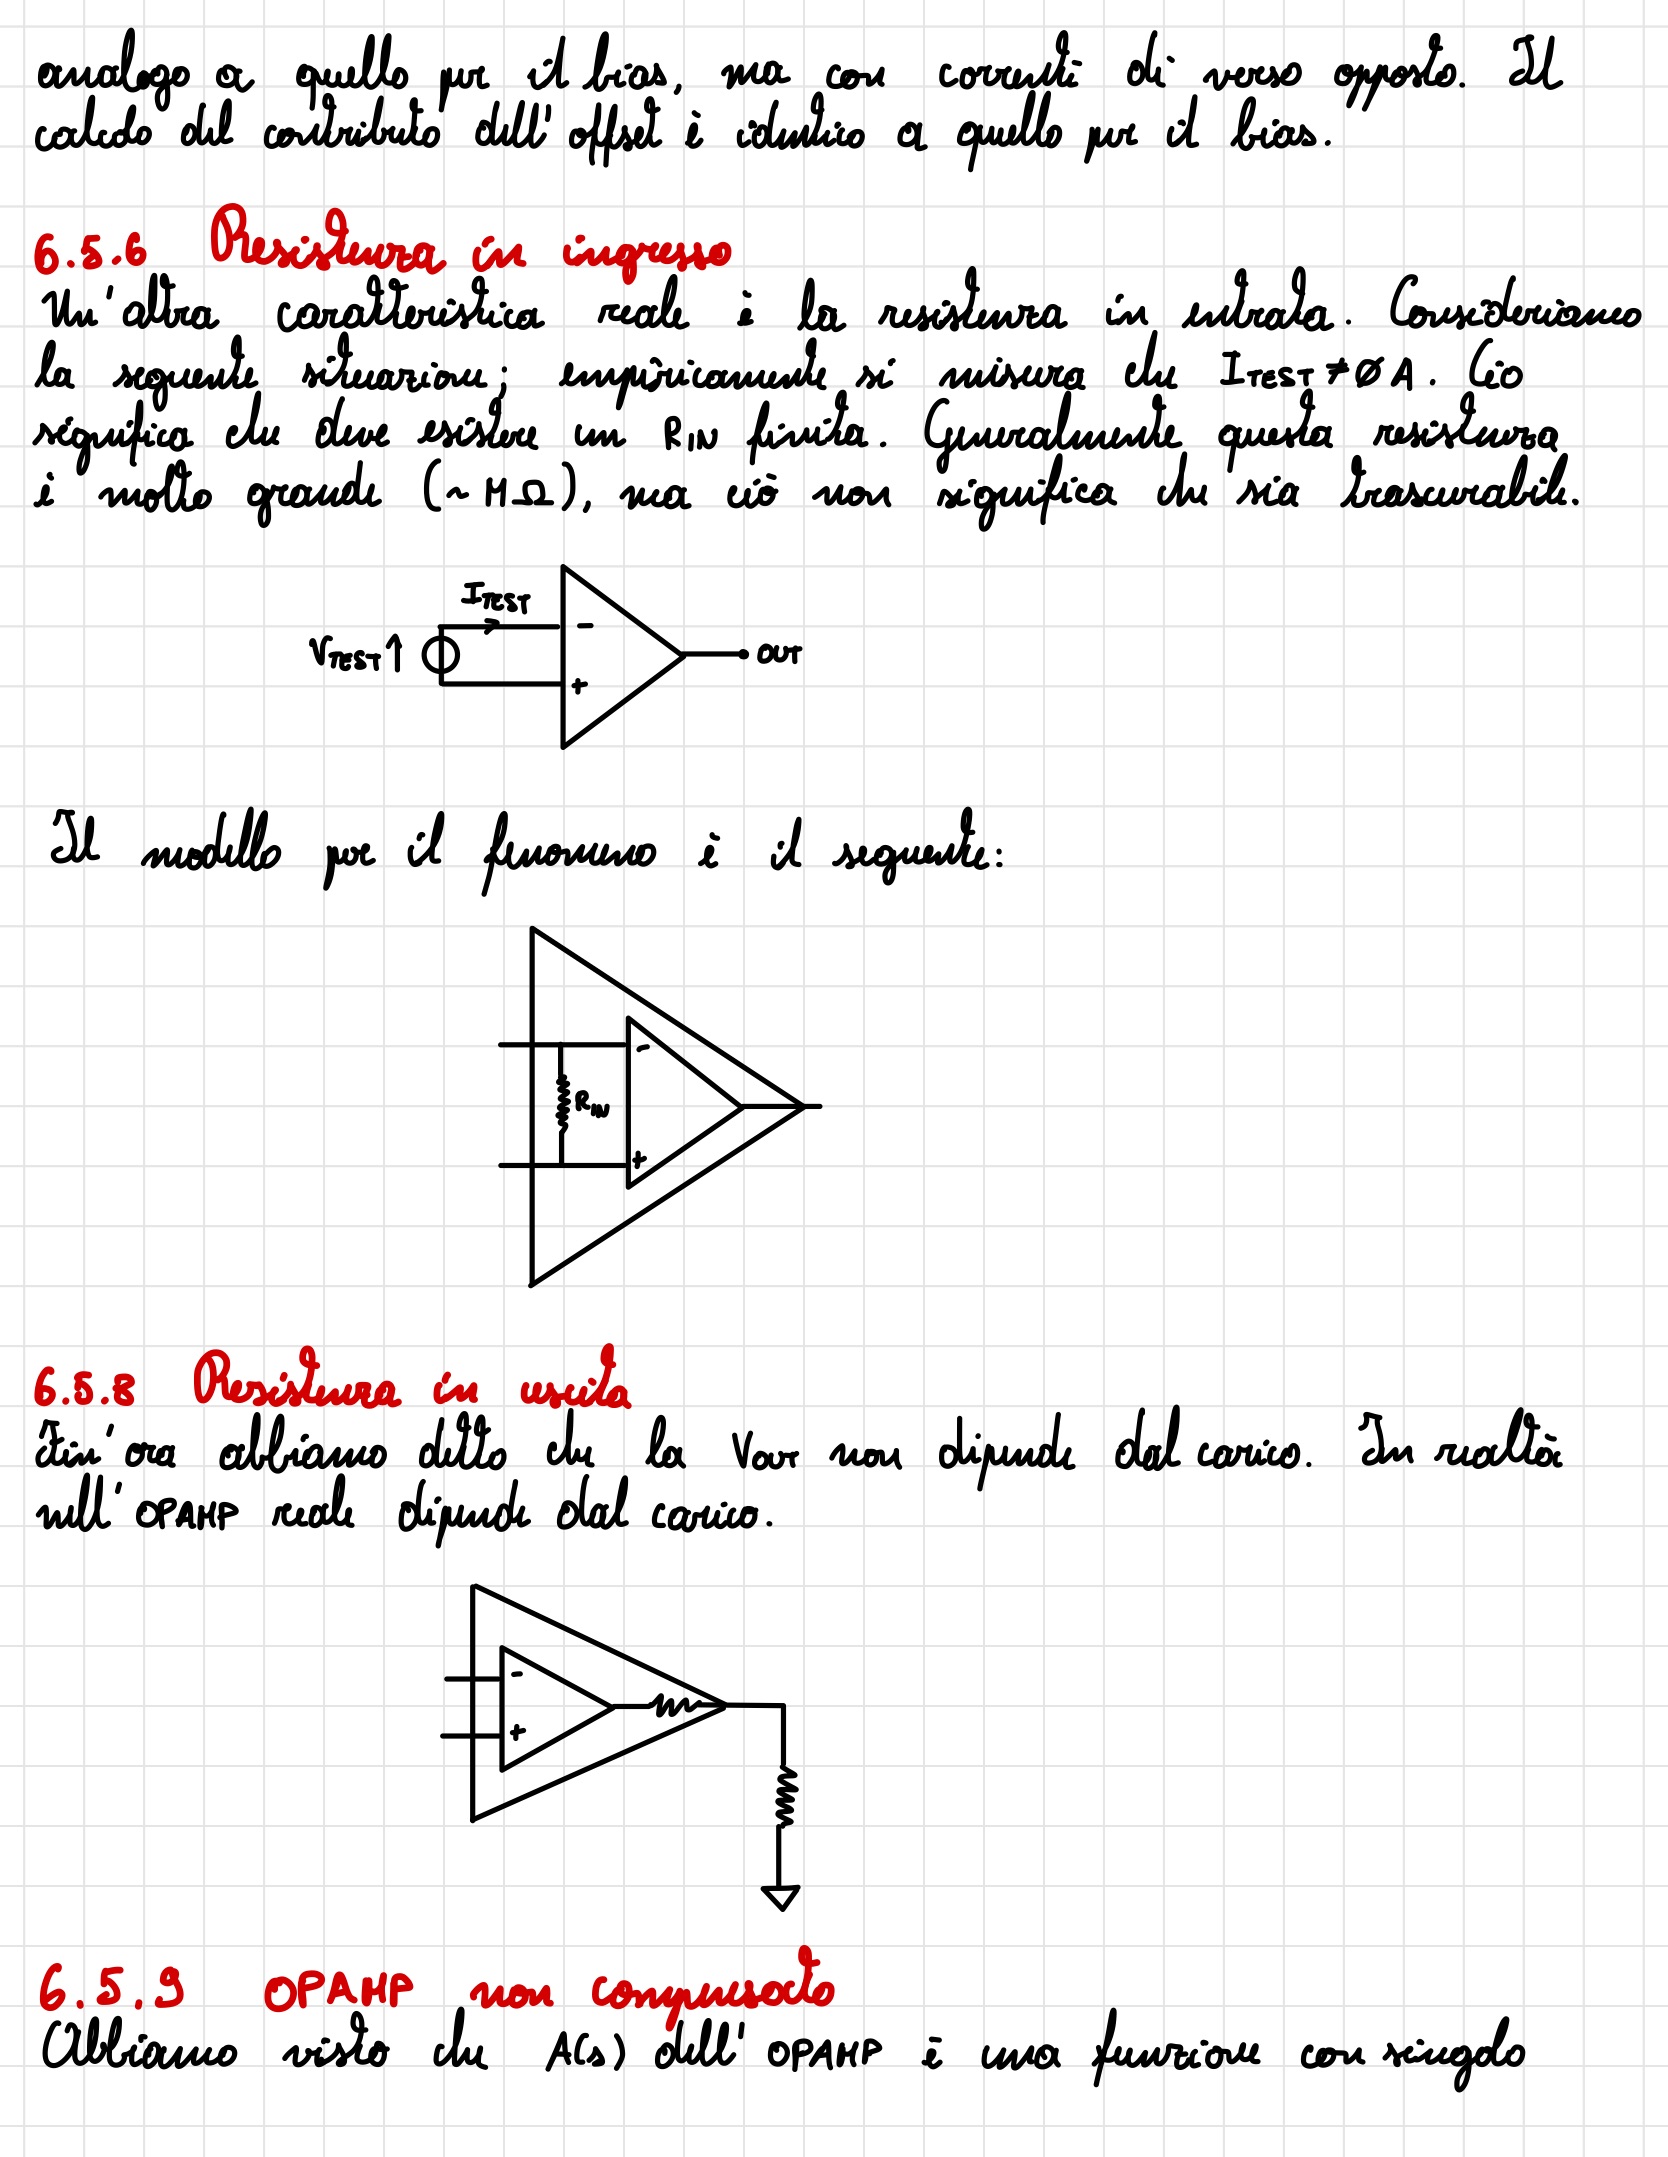 analogo a quello per il bias, ma con correnti di verso opposto. Il
calcolo del contributo dell'offset è identico a quello per il bias.
6.5.6 Resistenza in ingresso
Un'altra caratteristica reale è la resistenza in entrata. Consideriamo
la seguente situazione; empiricamente si misura che I_TEST ≠ Ø A. Ciò
significa che deve esistere un R_IN finita. Generalmente questa resistenza
è molto grande (~ MΩ), ma ciò non significa che sia trascurabile.
I_TEST
V_TEST ↑
-
+
OUT
Il modello per il fenomeno è il seguente:
-
R_IN
+
6.5.8 Resistenza in uscita
Fin'ora abbiamo detto che la V_OUT non dipende dal carico. In realtà
nell'OPAMP reale dipende dal carico.
-
+
6.5.9 OPAMP non compensato
Abbiamo visto che A(s) dell'OPAMP è una funzione con singolo